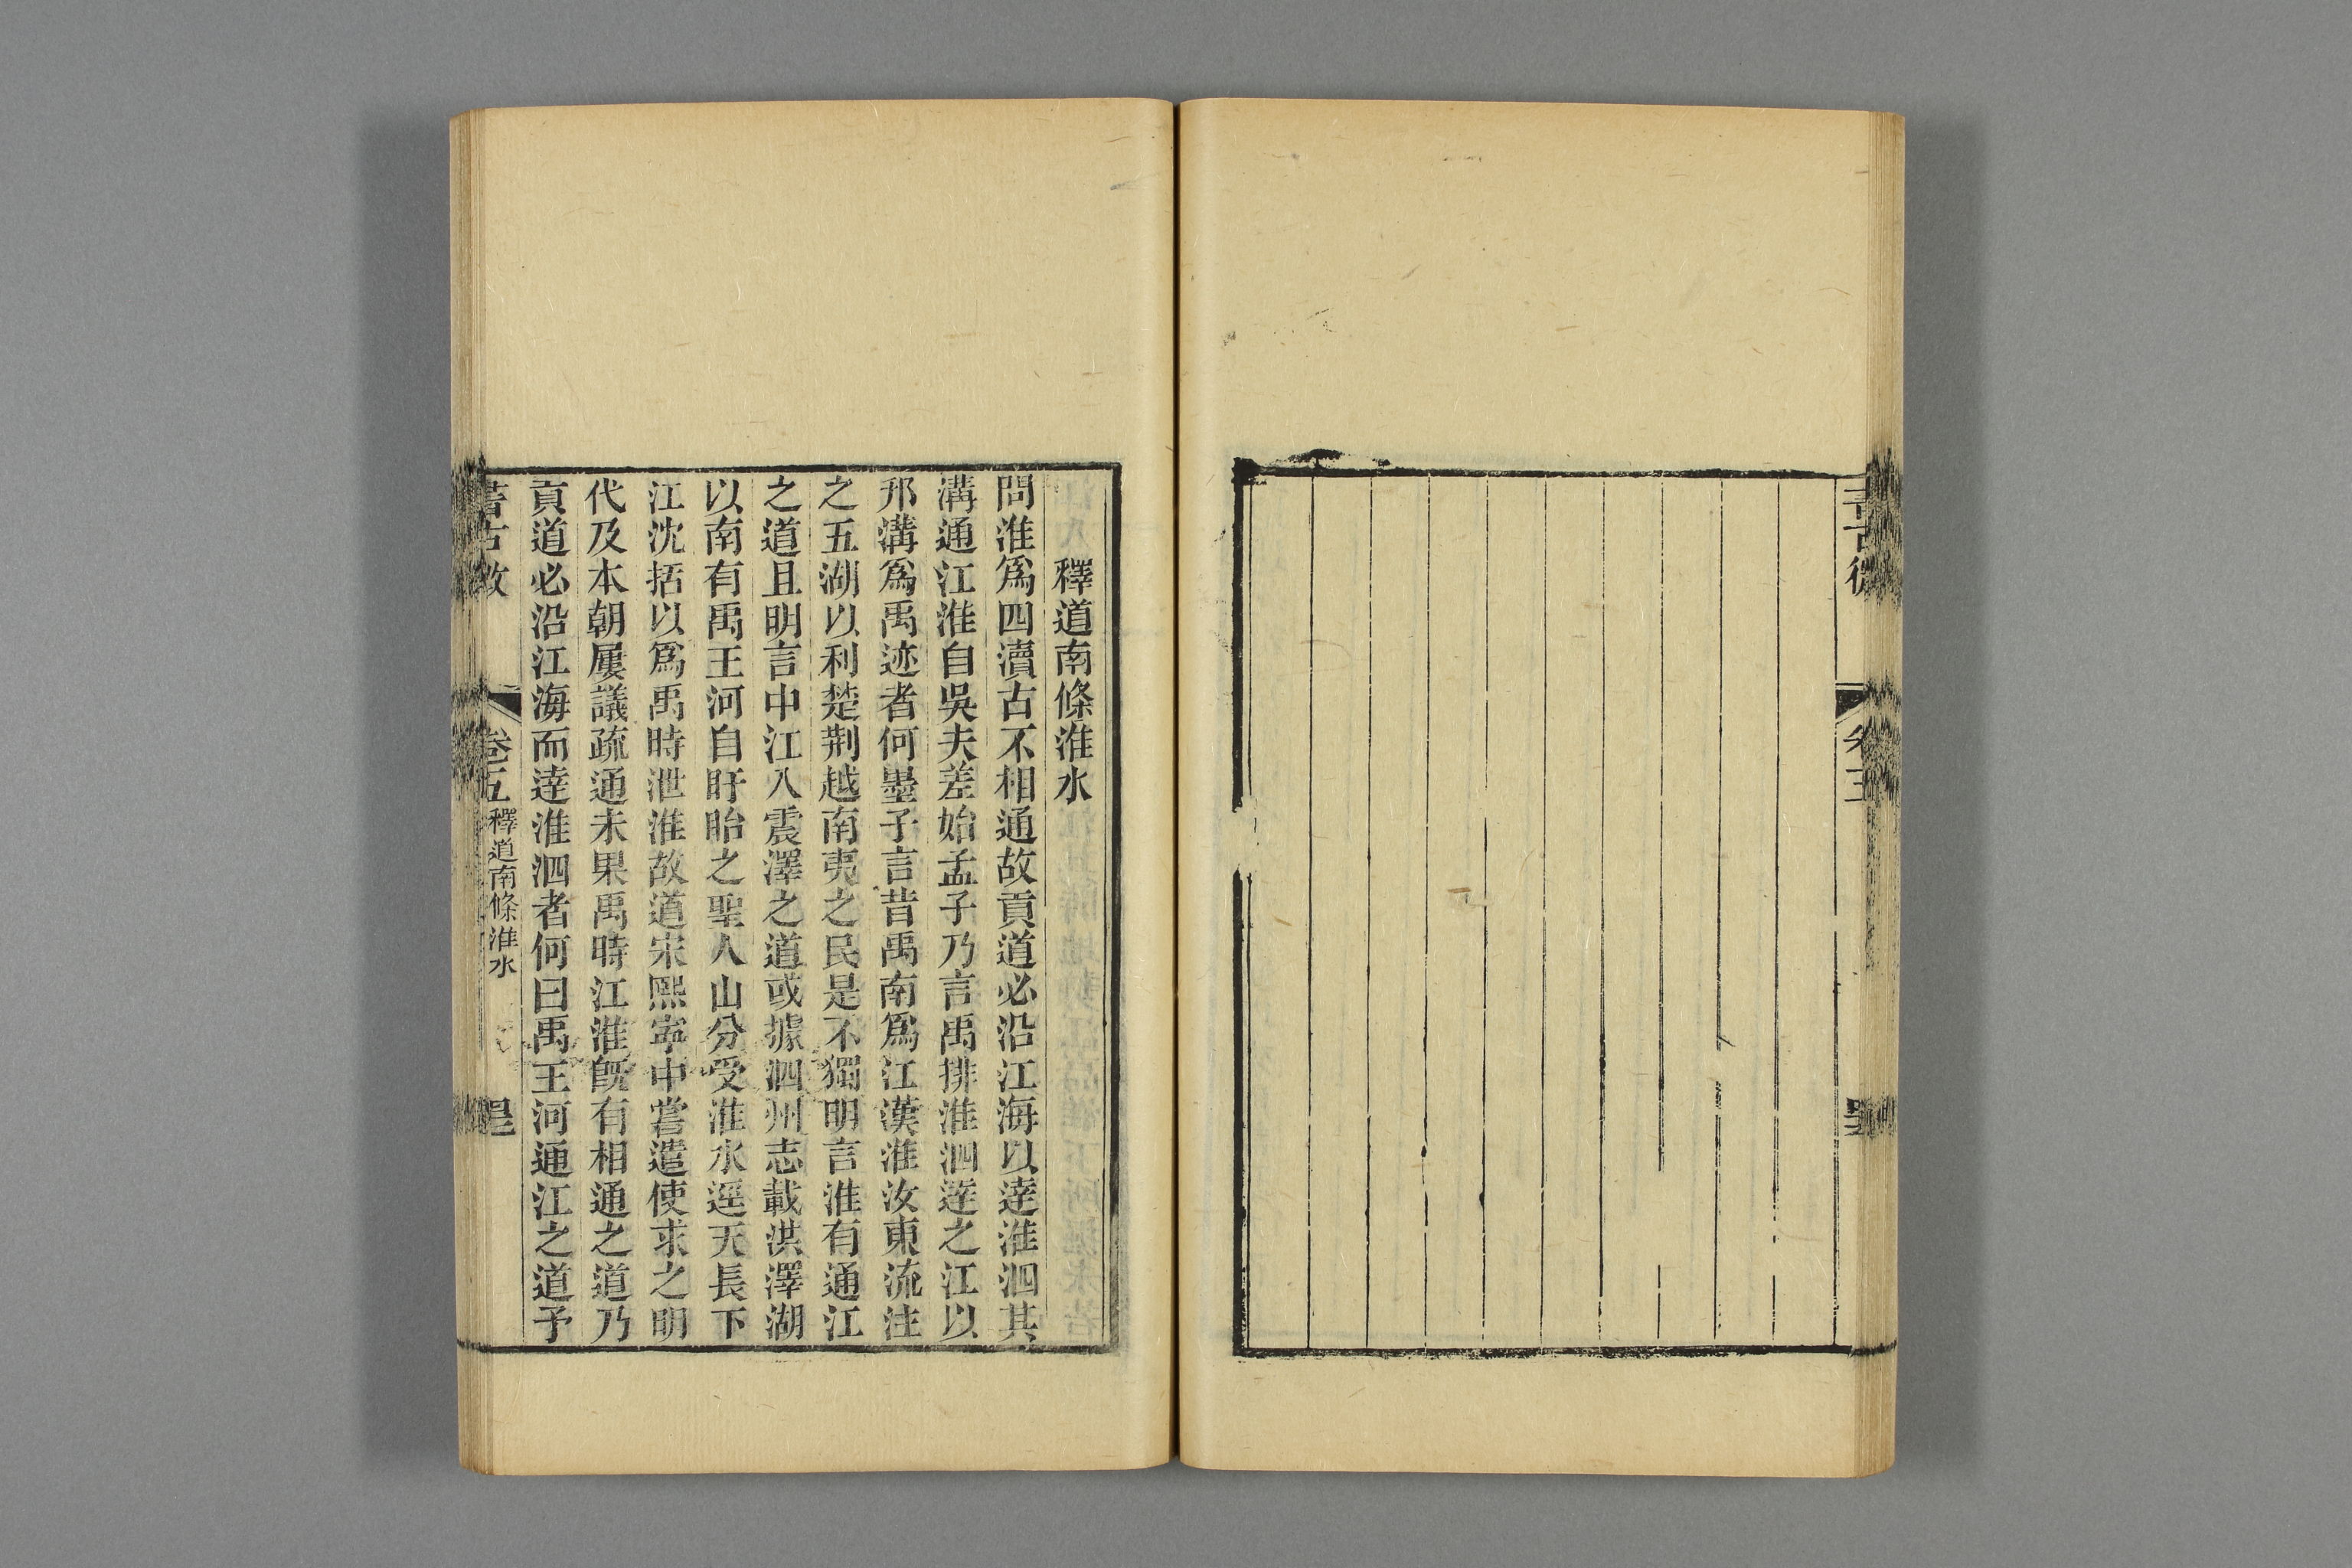 釋道南條淮水
問淮爲四瀆古不相通故貢道必沿江海以達淮泗其
溝通江淮自吳夫差始孟子乃言禹排淮泗達之江以
邗溝爲禹迹者何墨子言昔禹南爲江漢淮汝東流注
之五湖以利楚荆越南夷之民是不獨明言淮有通江
之道且明言中江入震澤之道或據泗州志載洪澤湖
以南有禹王河自盱眙之聖人山分受淮水逕天長下
江沈括以爲禹時泄淮故道宋熙寧中嘗遣使求之明
代及本朝屢議疏通未果禹時江淮旣有相通之道乃
貢道必沿江海而達淮泗者何曰禹王河通江之道予
書古微 卷五 釋道南條淮水
書古微